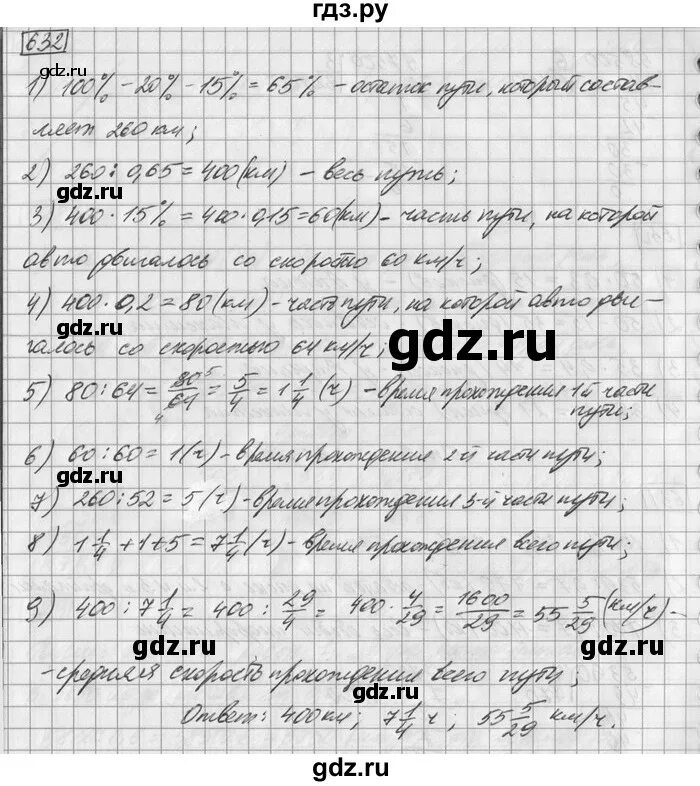 гдз.ру
632
1) 100% - 20% - 15% = 65% - остаток пути, который состав-
ляет 260 км;
2) 260 : 0,65 = 400 (км) - весь путь;
3) 400 · 15% = 400 · 0,15 = 60 (км) - часть пути, на которой
авто двигалось со скоростью 60 км/ч;
4) 400 · 0,2 = 80 (км) - часть пути, на которой авто дви-
галось со скоростью 64 км/ч;
5) 80 : 64 = 80/64 = 5/4 = 1 1/4 (ч) - время прохождения 1й части
пути;
6) 60 : 60 = 1 (ч) - время прохождения 2-й части пути;
7) 260 : 52 = 5 (ч) - время прохождения 3-й части пути;
8) 1 1/4 + 1 + 5 = 7 1/4 (ч) - время прохождения всего пути;
9) 400 : 7 1/4 = 400 : 29/4 = 400 · 4/29 = 1600/29 = 55 5/29 (км/ч) -
- средняя скорость прохождения всего пути;
Ответ: 400 км; 7 1/4 ч; 55 5/29 км/ч.
gdz.ru
gdz.ru
gdz.ru
gdz.ru
gdz.ru
gdz.ru
gdz.ru
gdz.ru
gdz.ru
gdz.ru
gdz.ru
гдз.ру